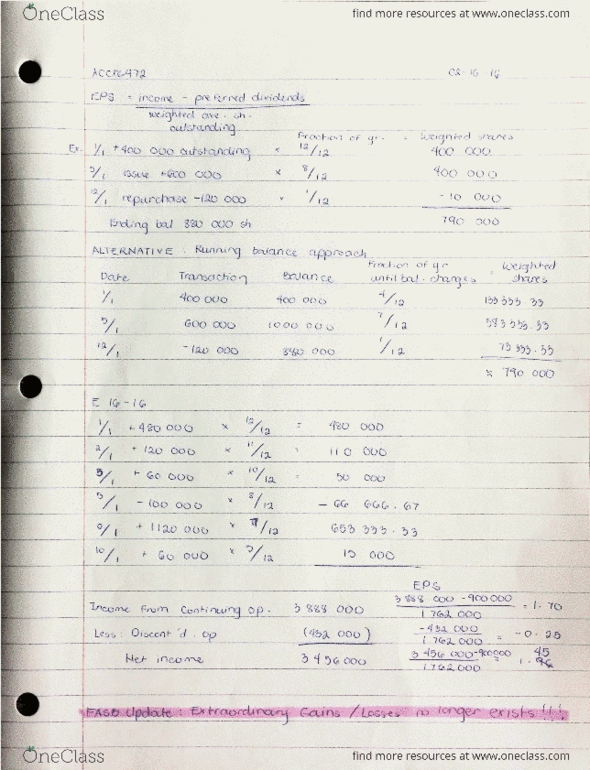 OneClass
find more resources at www.oneclass.com
ACCT 472 02-16-16
EPS = income - preferred dividends
weighted ave. sh.
outstanding
Fraction of yr. = Weighted shares
Ex. 1/1 +400 000 outstanding × 12/12 400 000
5/1 issue +600 000 × 8/12 400 000
12/1 repurchase -120 000 × 1/12 -10 000
Ending bal 880 000 sh 790 000
ALTERNATIVE: Running balance approach
Date Transaction Balance Fraction of yr until bal. changes = Weighted shares
1/1 400 000 400 000 4/12 133 333.33
5/1 600 000 1000 000 7/12 583 333.33
12/1 -120 000 880 000 1/12 73 333.33
790 000
E 16-16
1/1 +480 000 × 12/12 = 480 000
2/1 +120 000 × 11/12 = 110 000
3/1 +60 000 × 10/12 = 50 000
5/1 -100 000 × 8/12 - 66 666.67
+1120 000 × 7/12 653 333.33
10/1 +60 000 × 3/12 15 000
EPS
Income From Continuing Op. 3 888 000 3 888 000 - 900 000 / 1 762 000 = 1.70
Less: Discont'd. op (432 000) -432 000 / 1 762 000 = -0.25
Net income 3 456 000 3 456 000 - 900000 / 1 762 000 = 1.45
FASB Update: Extraordinary Gains/Losses no longer exists!!!
OneClass
find more resources at www.oneclass.com